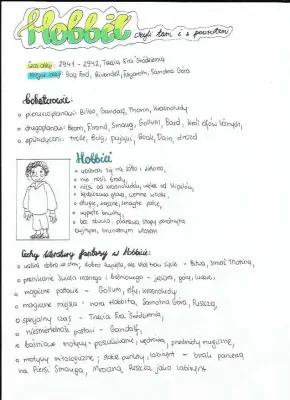 Hobbit czyli tam i z powrotem
Czas akcji: 2941 - 2942, Trzecia Era Śródziemia
Miejsce akcji: Bag End, Rivendell, Esgaroth, Samotna Góra
Bohaterowie:
pierwszoplanowi: Bilbo, Gandalf, Thorin, Krasnoludy
drugoplanowi: Beorn, Elrond, Smaug, Gollum, Bard, Król elfów leśnych,
epizodyczni: trolle, Bolg, pająki, Roak, Dain, drozd
Hobbici
ubierali się na żółto i zielono,
nie nosili brody,
niżsi od krasnoludów, więksi od liliputów,
kędzierzawa głowa, ciemne włosy,
długie, zręczne, smagłe palce,
wypukłe brzuchy,
bez obuwia; plackowate stopy porośnięte
gęstym, brunatnym włosem
Cechy literatury fantasy w Hobbicie:
walka dobra ze złem; dobro zwycięża, ale - Bitwa, śmierć Thorina,
przenikanie świata realnego i baśniowego - jeziora, góry, ludzie,
magiczne postacie - Gollum, elfy, krasnoludy
magiczne miejsca - nora Hobbita, Samotna Góra, Puszcza,
specjalny czas - Trzecia Era Śródziemia,
nieśmiertelność postaci - Gandalf,
baśniowe motywy - poszukiwanie, wędrówka, przedmioty magiczne,
motywy mitologiczne; słabe punkty, labirynt - brak pancerza
na piersi Smauga, Mroczna Puszcza jako labirynt